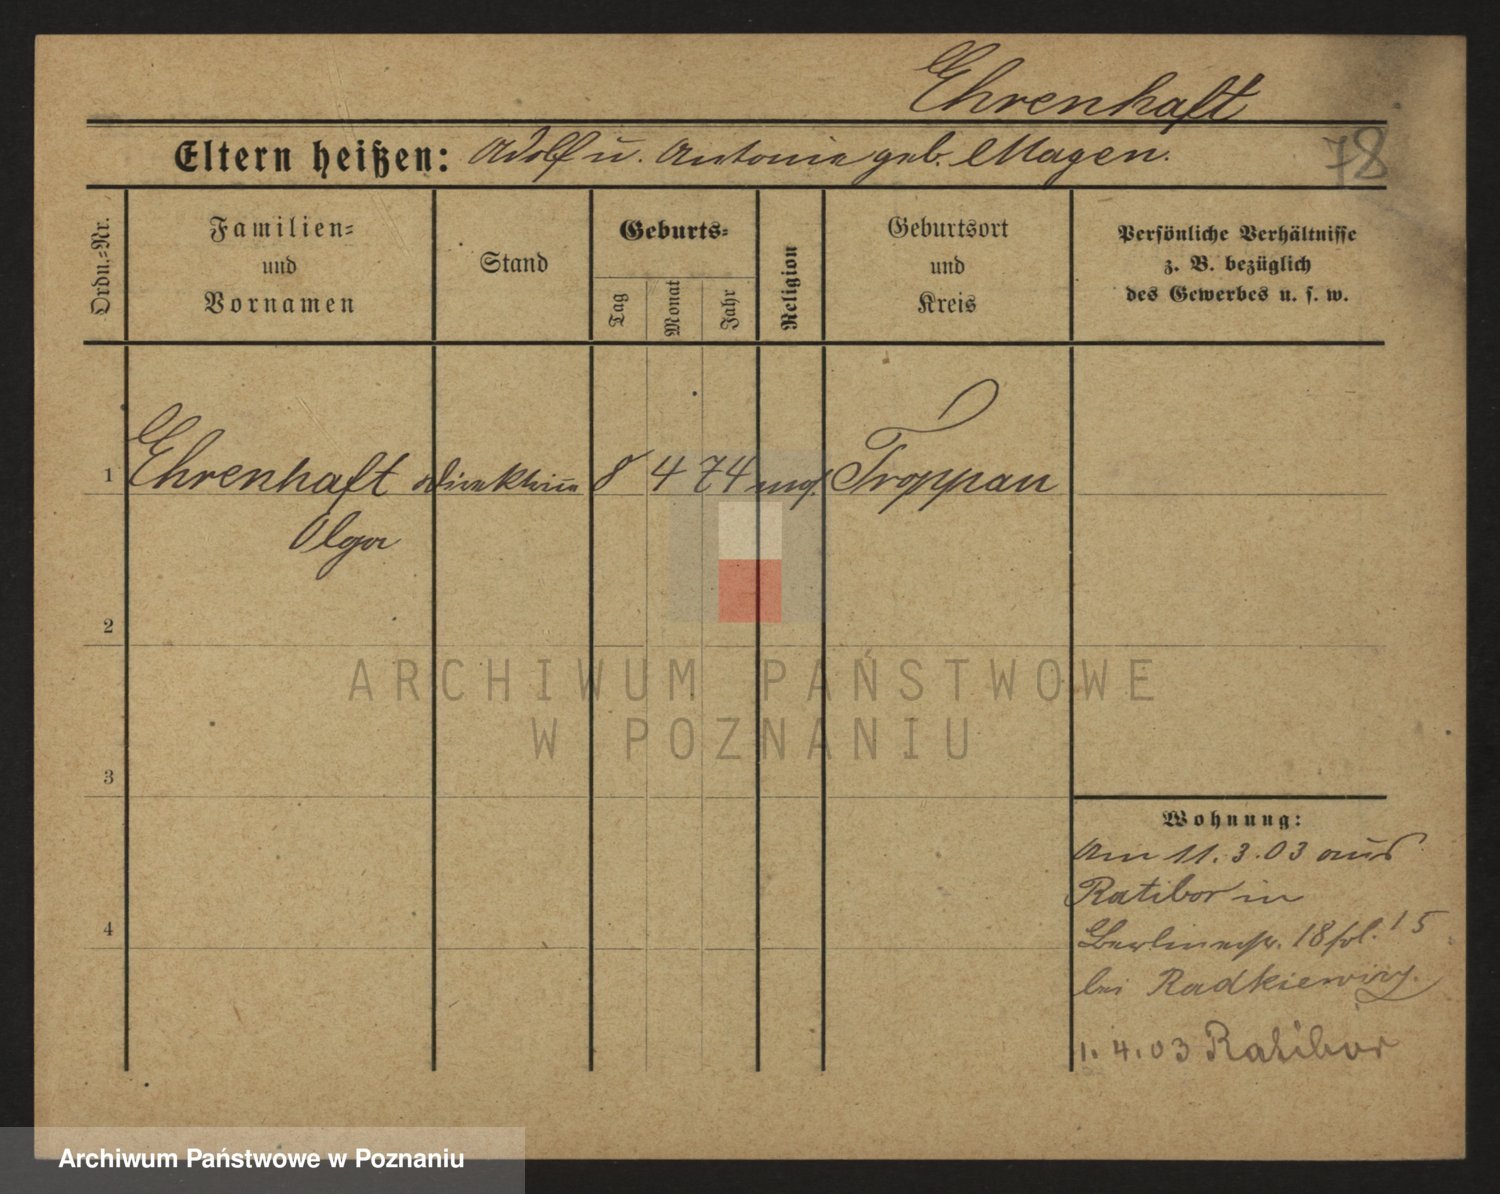 Ehrenhaft
Eltern heißen: Adolf u. Antonie geb. Magen.
78
Ordn.-Nr.
Familien- und Vornamen
Stand
Geburts-
Tag
Monat
Jahr
Religion
Geburtsort und Kreis
Persönliche Verhältnisse
z. B. bezüglich
des Gewerbes u. s. w.
1 Ehrenhaft Direktrice 8 4 74 Troppau
Olga
2
3
4
Wohnung:
Am 11.3.03 aus
Ratibor in
Berlinerstr. 18 15
bei Radkiewicz.
1.4.03 Ratibor
ARCHIWUM PAŃSTWOWE
W POZNANIU
Archiwum Państwowe w Poznaniu